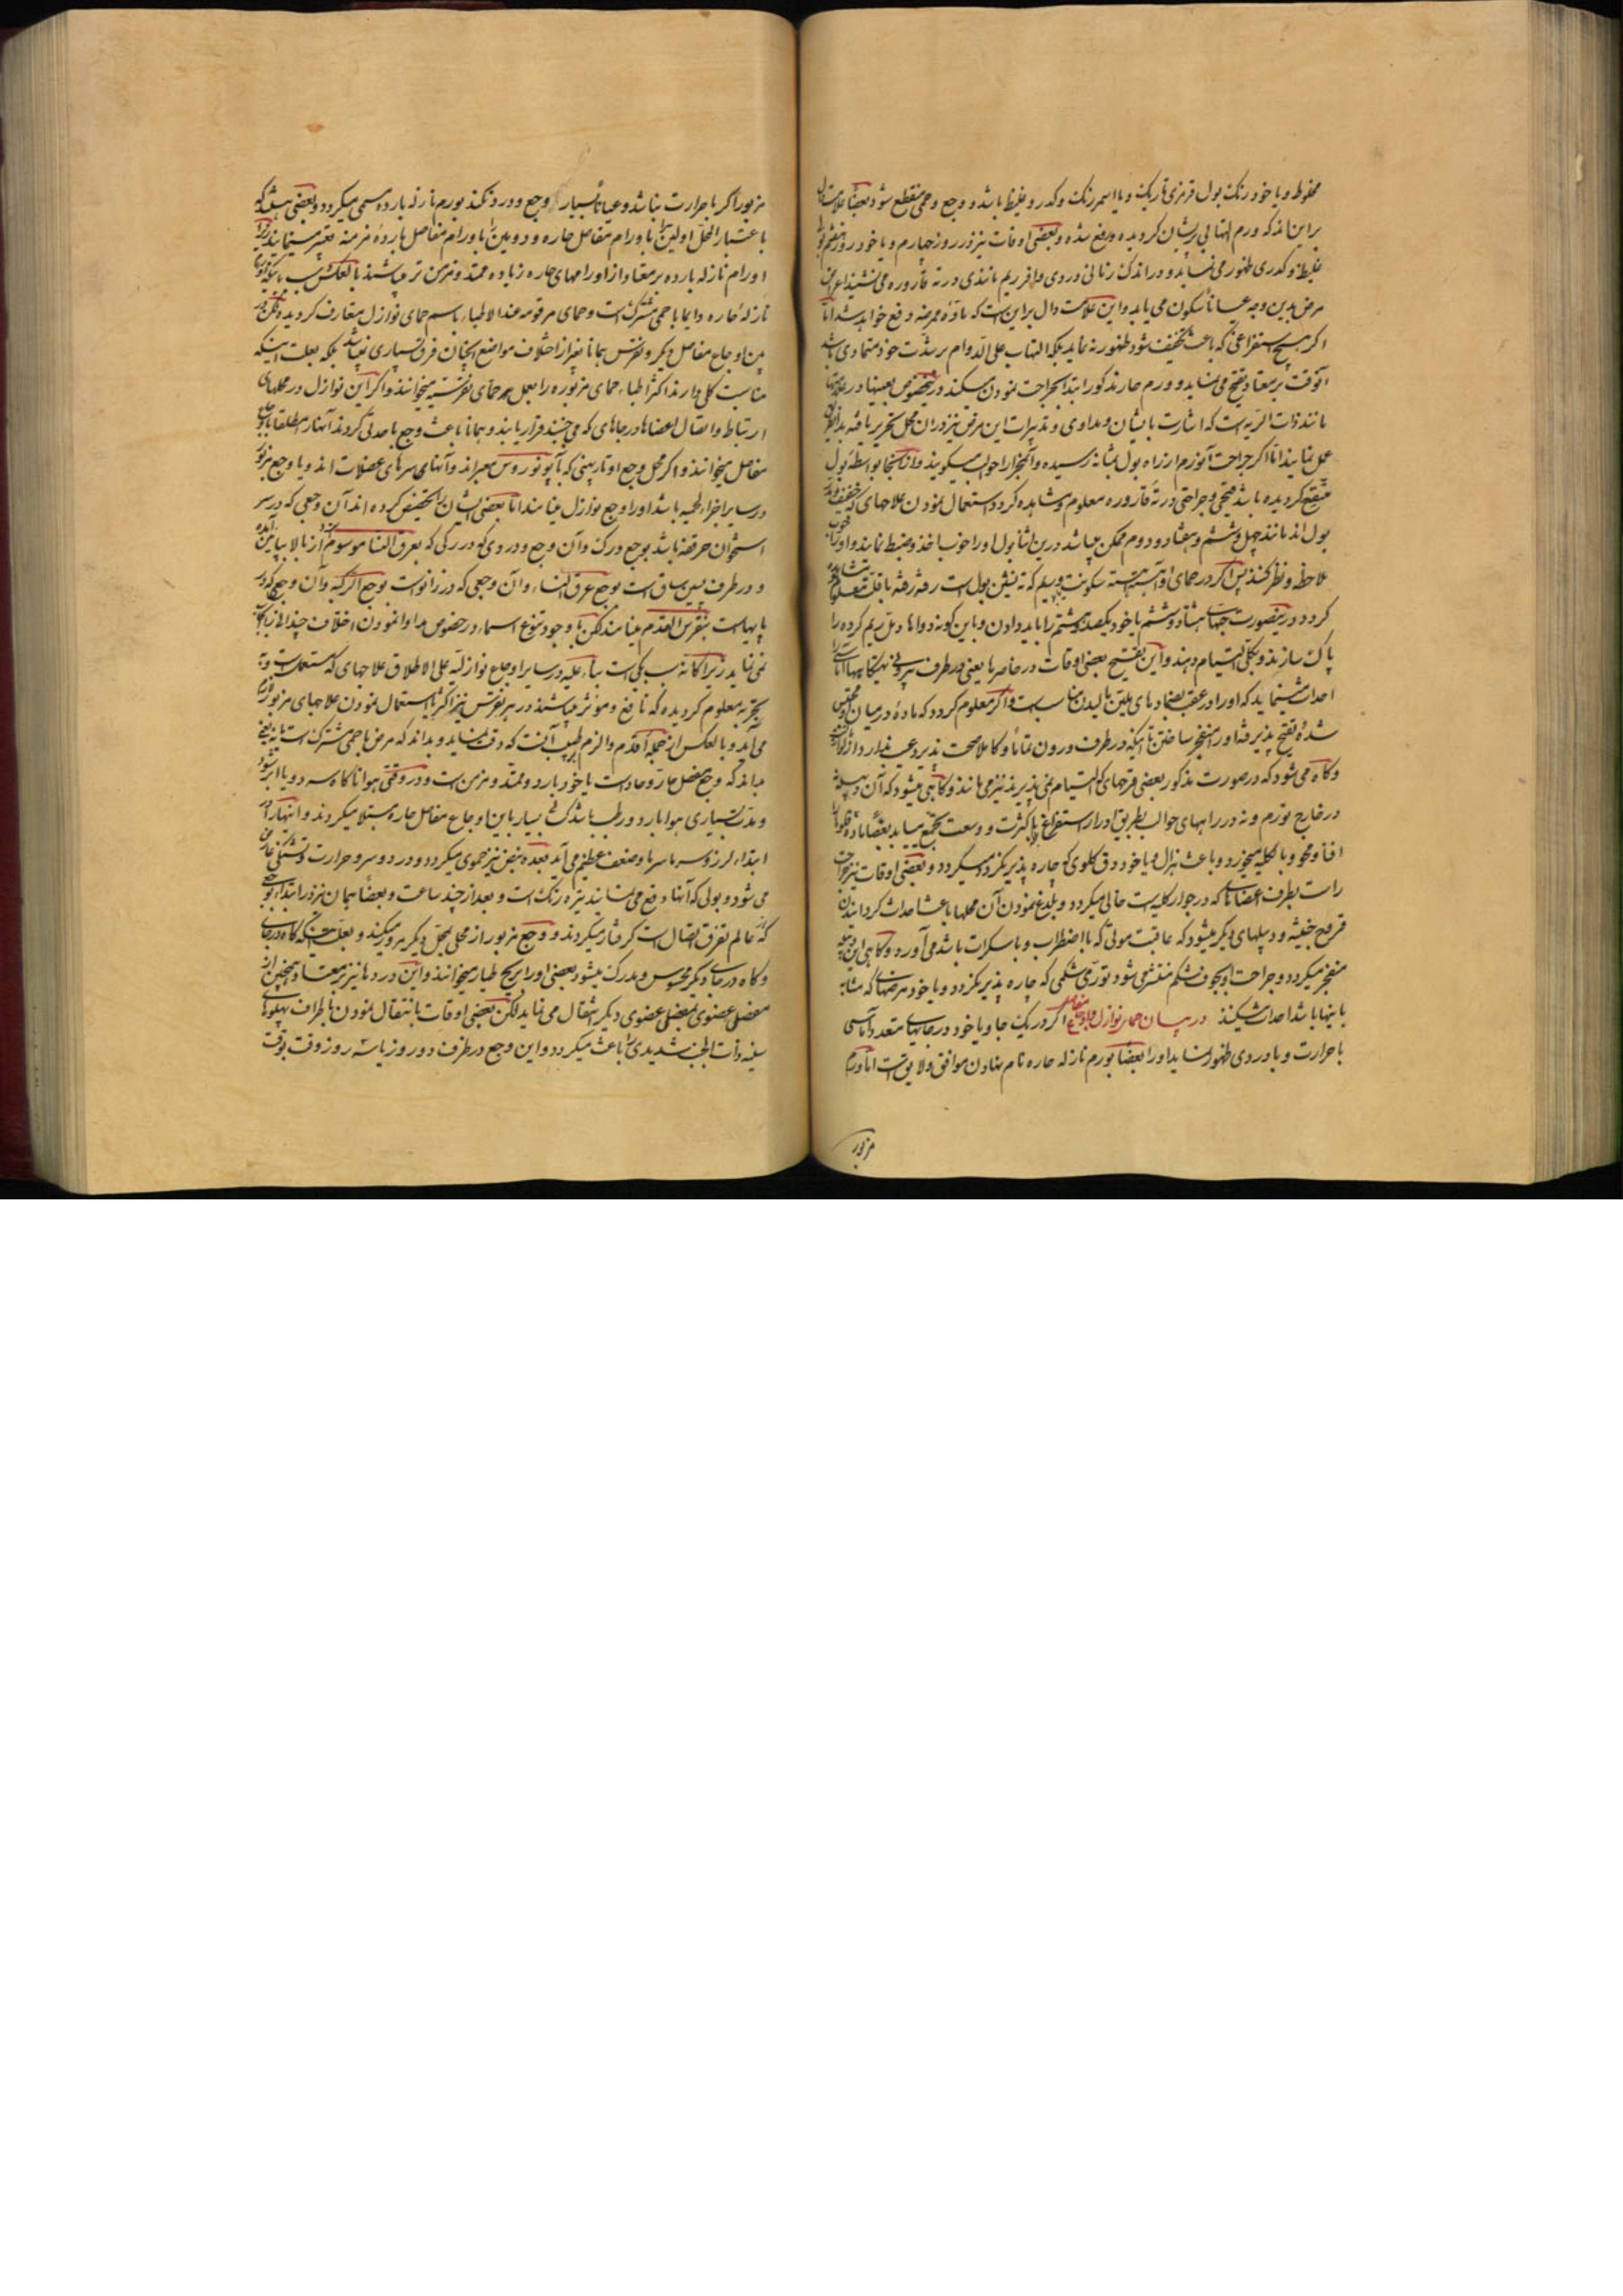 محفوظ و یا خود رنک بول قرمزی تاریک و یا اسمر رنک و کدر و غلیظ باشد و وجع و حمی منقطع شود بعضا علامت دال
براین اند که ورم التهابی پریشان کردیده و رفع شده و بعضی اوقات نیز در روز چهارم و یا خود روز هفتم بول
غلیظ و کدری ظهور می نماید و در اندک زمانی دردی وافر ریم مانندی در ته قاروره می نشیند اعراض
مرض بدین وجه عیانا سکون می یابد و این علامت دال براین است که ماده ممرضه دفع خواهد شد اما
اکر هیچ استفراغی که باعث تخفیف شود ظهور نه نماید بلکه التهاب علی الدوام بر شدت خود متمادی باشد
آنوقت بر معتاد تقیح می نماید و ورم حار مذکور ابتدا بجراحت نمودن میکند درین خصوص بعینها در علامتها
مانند ذات الریه است که اشارت بایشان و مداوی و تدبیرات این مرض نیز در ان محل تحریر یافته بدانطریق
عمل نمایند اما اکر جراحت آنورم از راه بول بمثانه رسیده و آنمجرا را حوالب میکویند و از آنجا بواسطه بول
متقیح کردیده باشد قیحی و جراحتی در ته قاروره معلوم و مشاهده کردد استعمال نمودن علاجهای که خفیف و مدر
بول اند مانند چهل و ششم و هفتاد و دوم ممکن میباشد درین اثنا بول او را خوب اخذ و ضبط نمایند و او را خوب
ملاحظه و نظر کنند پس اکر در حمای او آهسته آهسته سکونت و ریم که ته نشین بول است رفته رفته با قلت معلوم و مشاهده
کردد در ینصورت حبهای هشتاد و ششم یا خود یکصد و هشتم را باید دادن و باین کونه دواها دبل ریم کرده را
پاک سازند و بکلی التیام دهند و این تقیح بعضی اوقات در خاصرها یعنی در طرف بیرونی تهیکاهها آماسی را
احداث مینماید که او را در عقب ضمادهای ملین مالیدن مناسب است و اکر معلوم کردد که ماده در میان او محتبس
شده تقیح پذیرفته او را منفجر ساختن تا اینکه در طرف درون تماما و کاملا صحت پذیرد عیب ندارد
و کاه می شود که در صورت مذکور بعضی قرحهای که التیام نمی پذیرند نیز می مانند و کاهی میشود که آن دبیله
در خارج تورم و نه در راههای حوالب بطریق ادرار استفراغ با کثرت و وسعت تجمع مییابد بعضا ماده
افنا و محو و با کلیه میخورد و باعث هزال و یا خود دق کلوی که چاره پذیر نکردد میکردد و بعضی اوقات نیز جراحت
راست بطرف اعضاهای که در جوار کلیه است خالی میکردد و بلدغ نمودن آن محلها باعث احداث کردانیدن
قروح خبیثه و دبیلهای دیکر میشود که عاقبت موتی که با اضطراب و یا سکرات باشد می آورد و کاهی این دبیله
منفجر میکردد و جراحت او بجوف شکم منتشر می شود تورمی شکمی که چاره پذیر نکردد و یا خود مرضهای که مشابه
باینها باشد احداث میکند در بیان حمای نوازل و اوجاع مفاصل اکر در یک جا و یا خود در جایهای متعدد آماسی
با حرارت و با دردی ظهور نماید او را بعضا بورم نازله حاره نام نهادن موافق و لایق است اما ورم
مزبور
مزبور اکر با حرارت نباشد و عیانا بسیار وجع و درد نکند بورم نازله بارده مسمی میکردد و بعضی هست که
باعتبار المحل اولین را باورام مفاصل حاره و دومین را باورام مفاصل بارده مزمنه تعبیر مینمایند زیرا
اورام نازله بارده بر معتاد از اورامهای حاره زیاده ممتد و مزمن تر میباشند بالعکس بسبب اینکه اورام
نازله حاره دایما با حمی مشترک است و حمای مرقومه عند الاطباء باسم حمای نوازل متعارف کردیده لکن در
بین اوجاع مفاصل دیکر و نقرس همانا بغیر از اختلاف مواضع آنچنان فرق بسیاری نمیباشد بلکه بعلت اینکه
مناسبت کلی دارند اکثر اطباء حمای مزبوره را بعمل هم حمای نقرسیه میخوانند و اکر این نوازل در محلهای
ارتباط و اتصال اعضاها در جاهای که می جنبند قرار یابند و همانا باعث وجع با حدتی کردند آنها را مطلقا باوجاع
مفاصل میخوانند و اکر محل وجع اوتار پهنی که بآپونوروس معبر اند و آنها می سرهای عضلات اند و یا وجع مزبور
در سایر اجزاء لحمیه باشد او را وجع نوازل مینامند اما بعضی ایشان تخصیص کرده اند آن وجعی که در سر
استخوان حرقفه باشد بوجع ورک و آن وجع و دردی که در رکی که بعرق النسا موسوم از بالا بپایین آید
و در طرف پسین ساق است بوجع عرق النساء و آن وجعی که در زانوست بوجع الرکبه و آن وجعی که در
پایهاست بنقرس القدم مینامند لکن با وجود تنوع اسماء در خصوص مداوا نمودن اختلاف چندانی
نمی نماید زیرا که آنه سبب یکی است بناء علیه در سایر اوجاع نوازلیه علی الاطلاق علاجهای که مستعمل است و به
تجربه معلوم کردیده که نافع و مؤثر میباشند در هر نقرس نیز اکثر باستعمال نمودن علاجهای مزبور لازم
می آید و بالعکس از جمله اقدم و الزم طبیب آنست که دقت نماید و بداند که مرض با حمی مشترک است یا نه یعنی
بداند که وجع مفصل حار و حاد است یا خود بارد و ممتد و مزمن است و در وقتی هوا ناکاه سرد و یا ابر شود
و مدت بسیاری هوا بارد و رطب باشد کسان بسیار باین اوجاع مفاصل حاره مبتلا میکردند و آنها را در
ابتداء لرزه و سرما سرما و ضعف عظیم می آید بعده نبض نیز حموی میکردد و درد سر و حرارت و تشنکی عارض
می شود و بولی که آنها دفع می نمایند تیره رنک است و بعد از چند ساعت و بعضا همان نیز در ابتداء بوجعی
که عالم تفرق اتصال است کرفتار میکردند و وجع مزبور از محلی بمحل دیکر مرور میکند و بعلت اینکه کاه در جای
و کاه در جای دیکر محسوس و مدرک میشود بعضی او را بریح طیار میخوانند و این دردها نیز بر معتاد همچنین از
مفصل عضوی بمفصل عضوی دیکر انتقال می نماید لکن بعضی اوقات بانتقال نمودن باطراف پهلوهای
سینه ذات الجنب شدیدی را باعث میکردد و این وجع در ظرف دو روز یا سه روز وقت بوقت